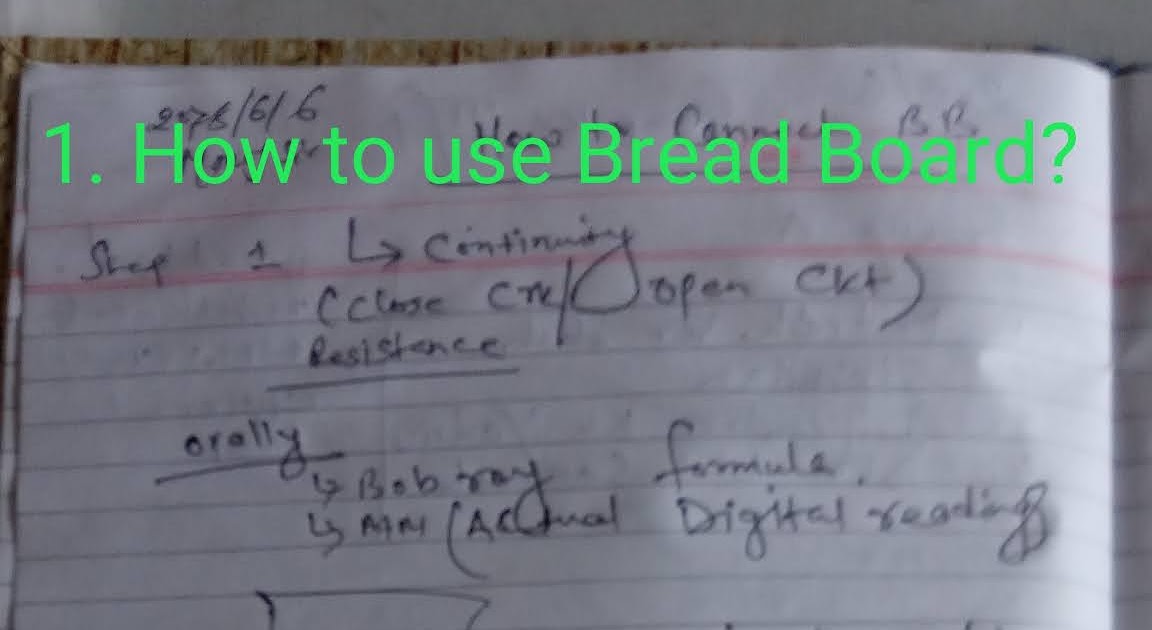 2076/6/6
How to Connect B.B.
1. How to use Bread Board?
Step 1 ↳ Continuity
(Close Crk/Open Ckt)
Resistence
orally
↳ Bob roy formula.
↳ MM (Actual Digital reading